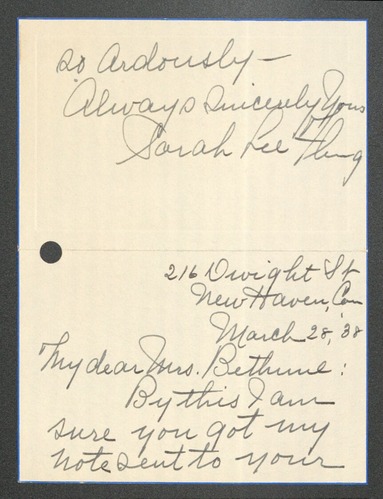 so ardously—
Always sincerely yours
Sarah Lee
216 Dwight St
New Haven, Con
March 28, '38
My dear Mrs. Bethune:
By this I am
sure you got my
note sent to your